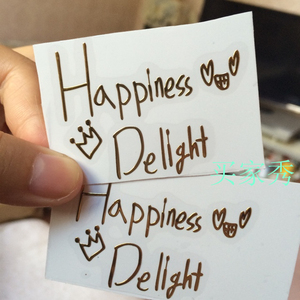 Happiness
Delight
买家秀
Happiness
Delight